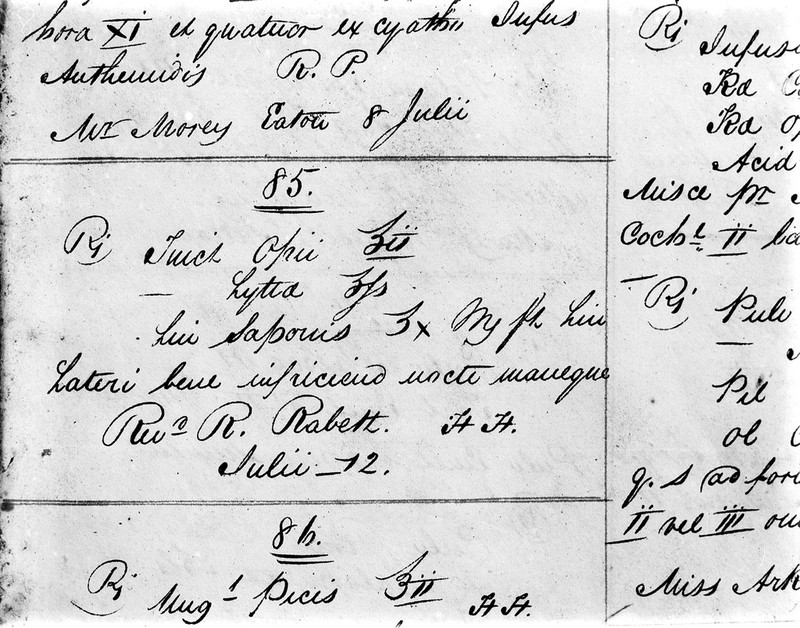 hora XI et quatuor ex cyatho Infus
Anthemidis R. P.
Mr Morey Eaton 8 Julii
85.
R Tinct Opii ʒii
— Lytta ʒſs
Lin Saponis ʒx M ft Lin
Lateri bene infriciend nocte maneque
Revd R. Rabett. H H.
Julii _ 12.
86.
R Ung t Picis ʒii H H.
R
Infus
Acid
Misce pr
Coch L II
R Pulv
—
Pil
ol
q. s ad for
II vel III
Miss Ark